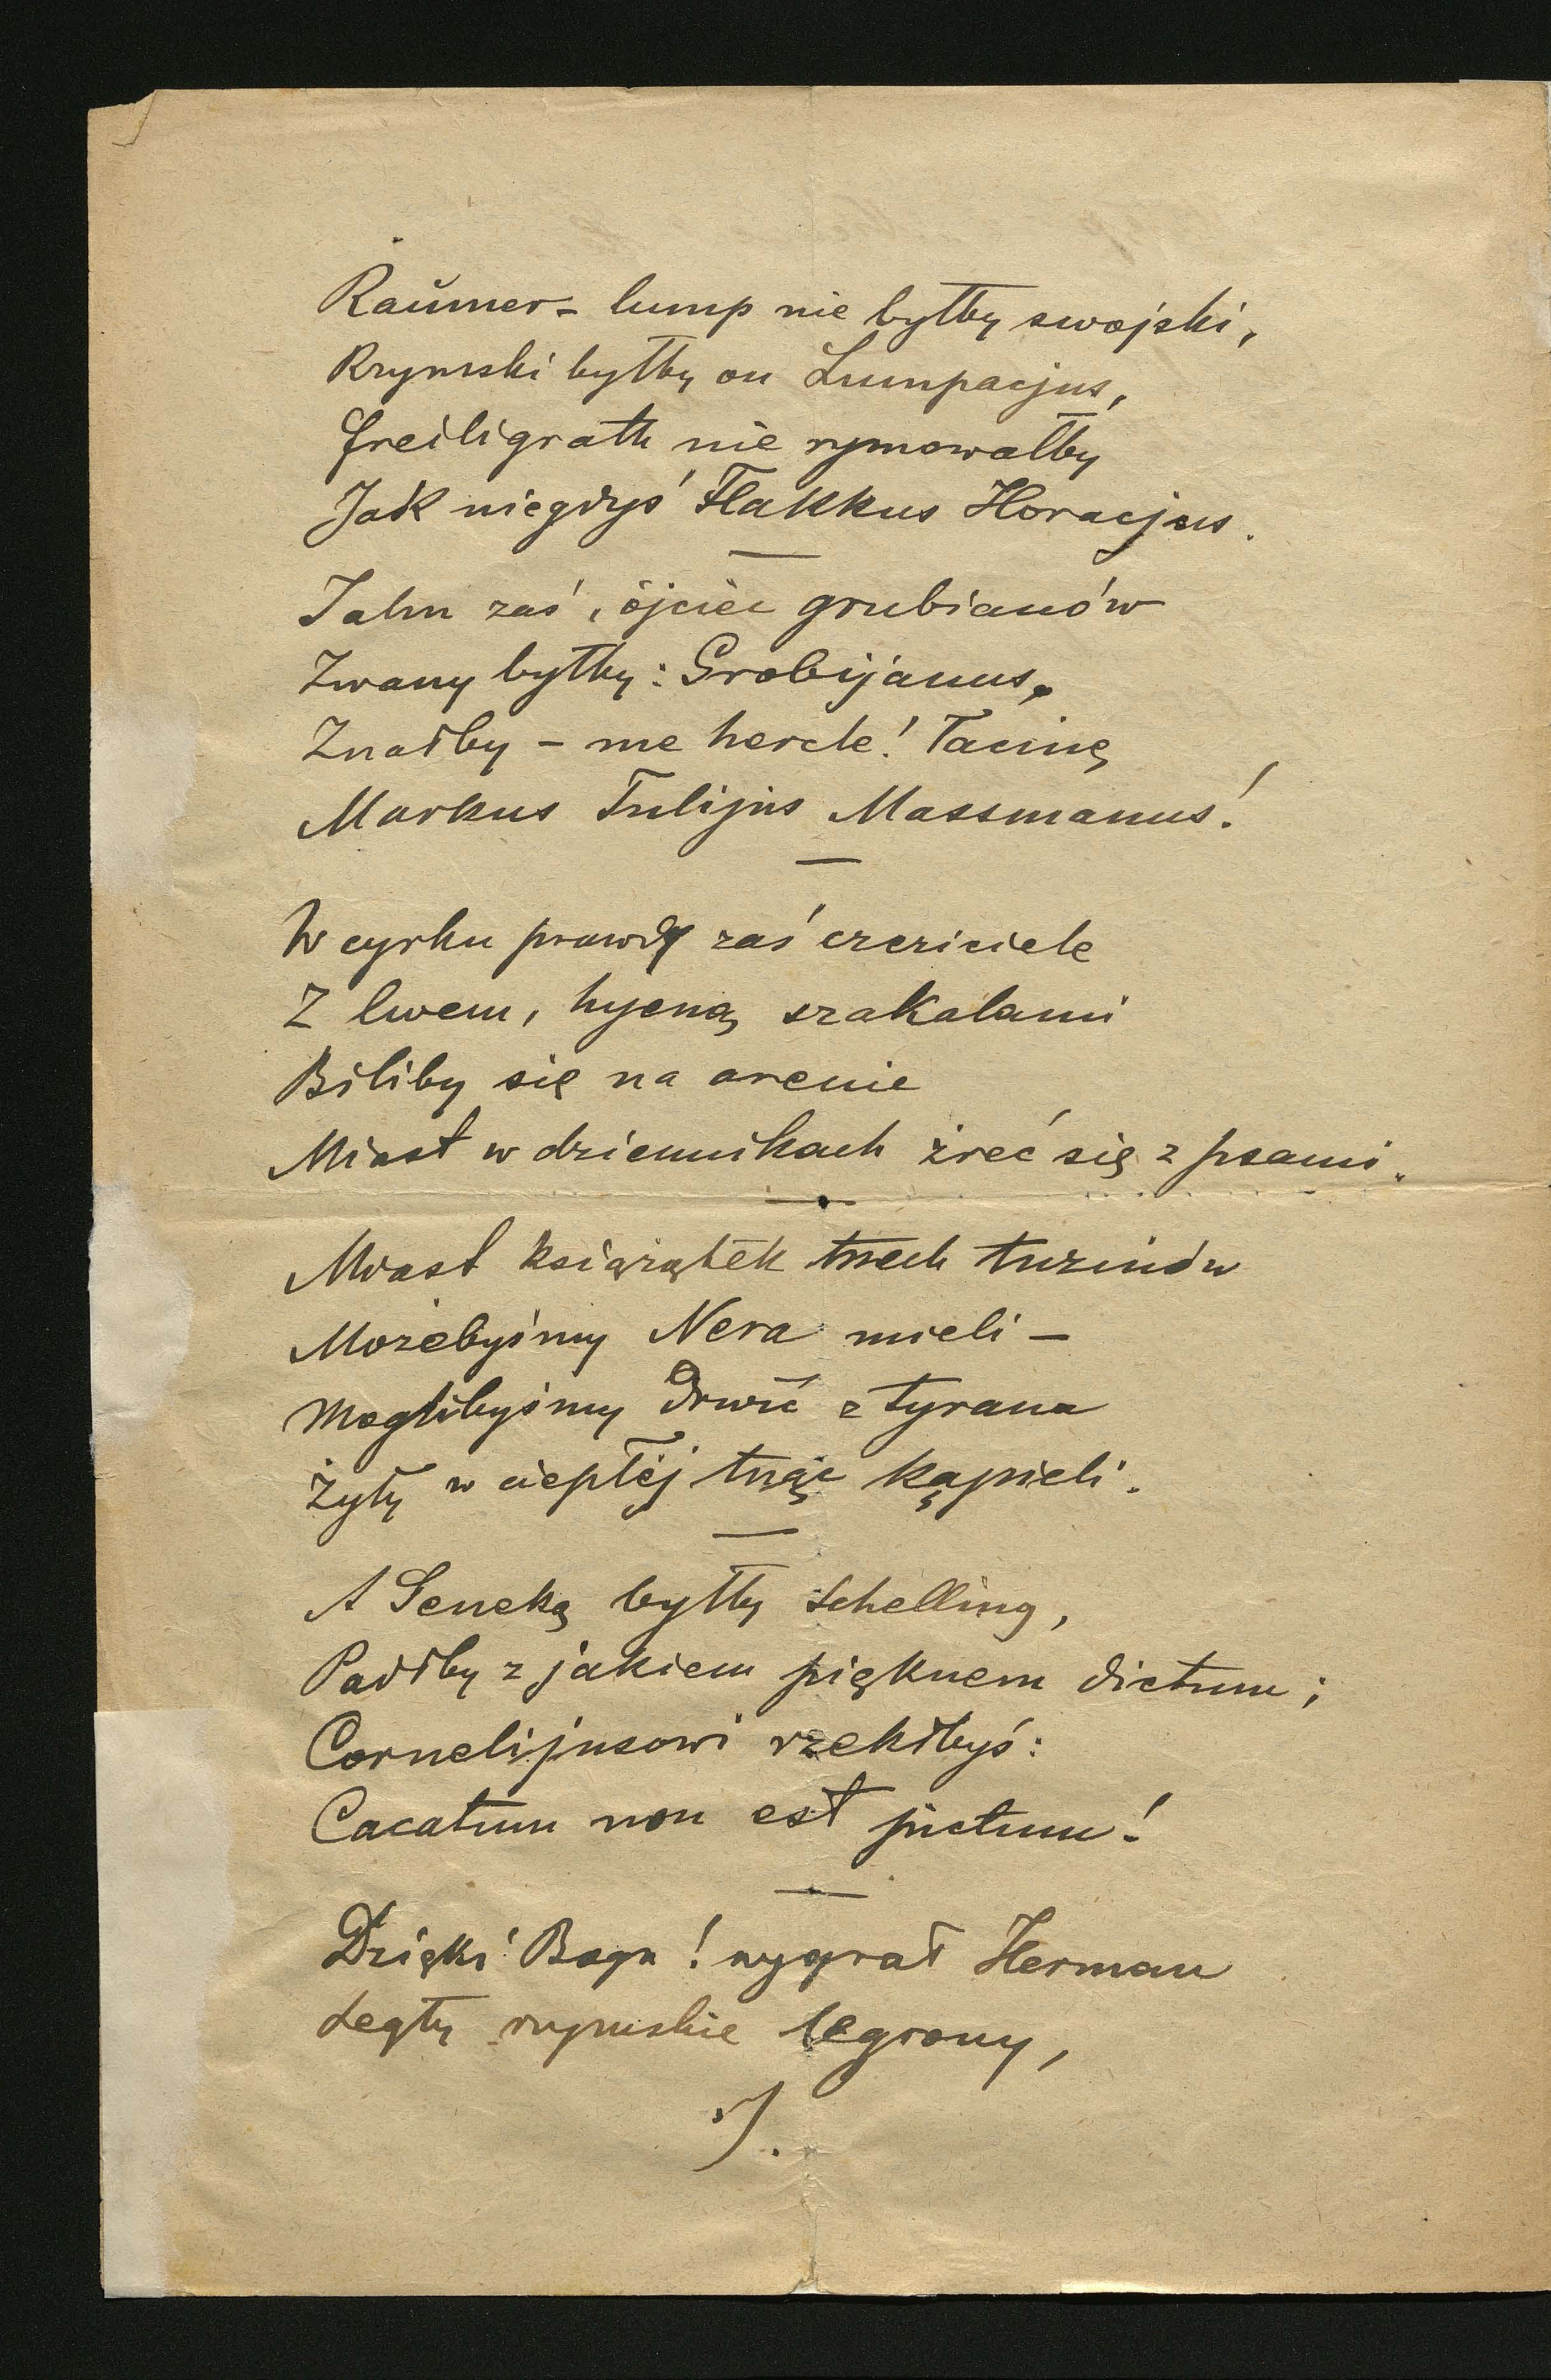 Raŭmer - lump nie byłby swojski,
Rzymski byłby on Lumpacjus,
Freiligrath nie rymowałby
Jak niegdyś Flakkus Horacjus.
Jahn zaś, ojciec grubianów
Zwany byłby: Grobijanus,
Znałby - me hercle! łacinę
Markus Tulijus Massmanus!
W cyrku prawdy zaś czciciele
Z lwem, hyeną, szakalami
Biliby się na arenie
Miast w dziennikach żreć się z psami.
Miast książątek trzech tuzinów
Możebyśmy Nera mieli -
Moglibyśmy drwić z tyrana
Żyły w ciepłéj tnąc kąpieli.
A Seneką byłby Schelling,
Padłby z jakiem pięknem dictum;
Cornelijusowi rzekłbyś:
Cacatum non est pictum!
Dzięki Bogu! wygrał Herman
Legły rzymskie legiony,
./.